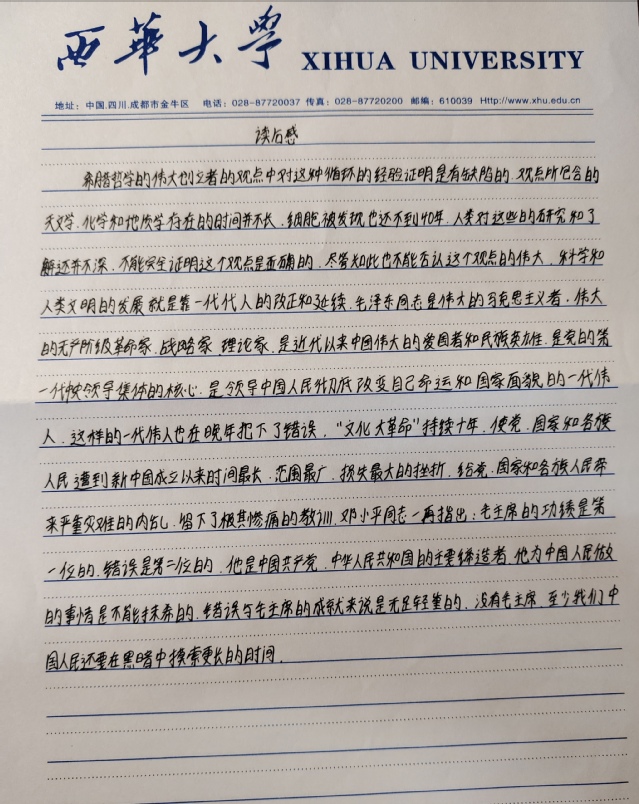 西華大學 XIHUA UNIVERSITY
地址：中国.四川.成都市金牛区 电话：028-87720037 传真：028-87720200 邮编：610039 Http://www.xhu.edu.cn
读后感
希腊哲学的伟大创立者的观点中对这种循环的经验证明是有缺陷的.观点所包含的
天文学.化学和地质学存在的时间并不长.细胞被发现也还不到40年.人类对这些的研究和了
解还并不深.不能完全证明这个观点是正确的.尽管如此也不能否认这个观点的伟大.科学和
人类文明的发展就是靠一代代人的改正和延续.毛泽东同志是伟大的马克思主义者.伟大
的无产阶级革命家.战略家.理论家.是近代以来中国伟大的爱国者和民族英雄.是党的第
一代领导集体的核心.是领导中国人民彻底改变自己命运和国家面貌的一代伟
人.这样的一代伟人也在晚年犯下了错误."文化大革命"持续十年.使党.国家和各族
人民遭到新中国成立以来时间最长.范围最广.损失最大的挫折.给党.国家和各族人民带
来严重灾难的内乱.留下了极其惨痛的教训.邓小平同志一再指出：毛主席的功绩是第
一位的.错误是第二位的.他是中国共产党.中华人民共和国的主要缔造者.他为中国人民做
的事情是不能抹杀的.错误与毛主席的成就来说是无足轻重的.没有毛主席.至少我们中
国人民还要在黑暗中摸索更长的时间.